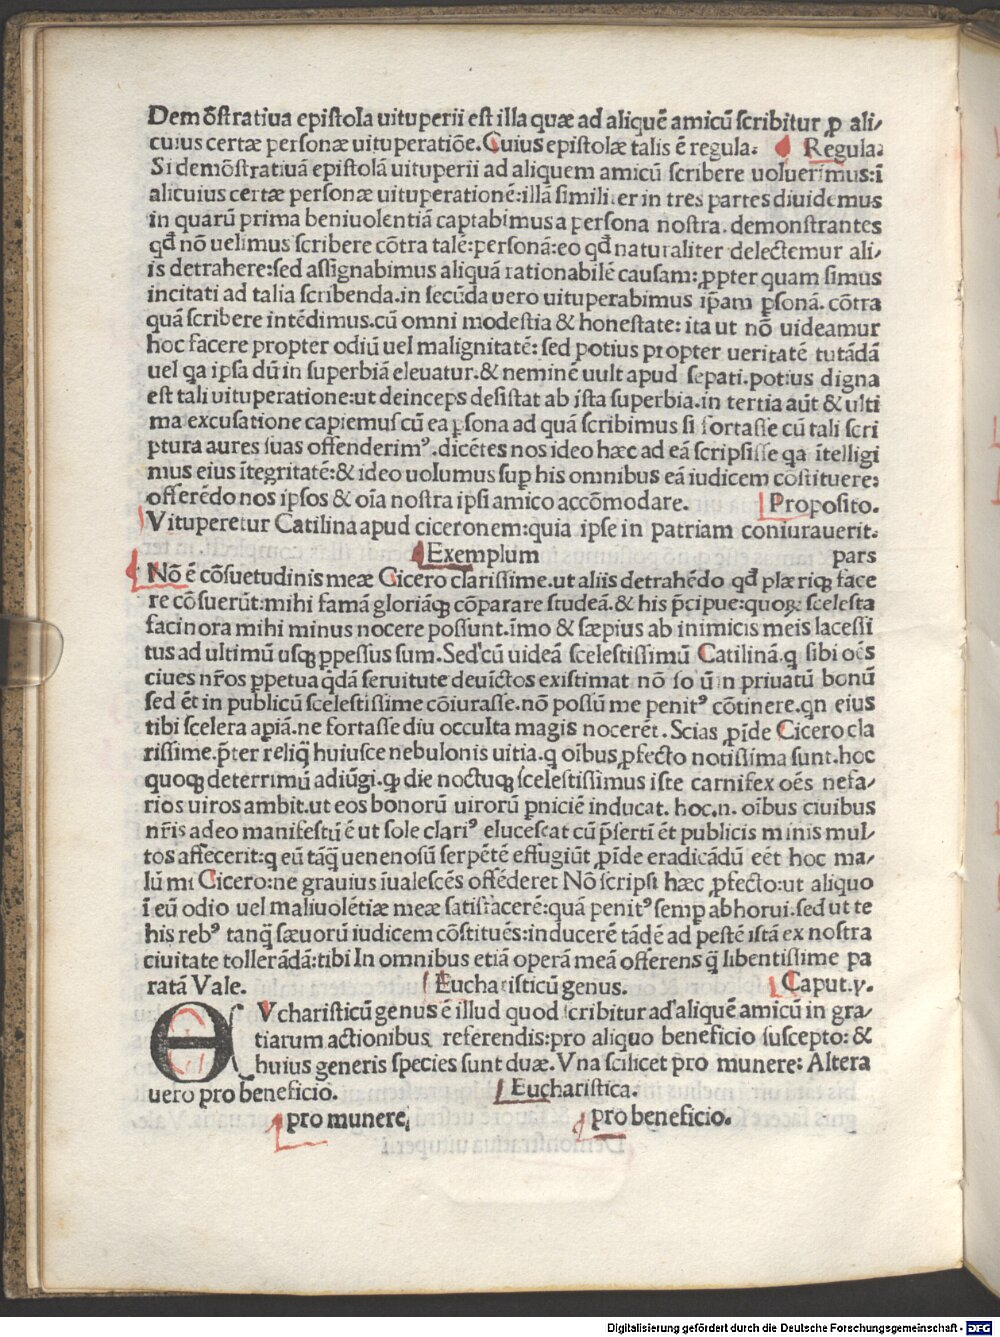 Demōſtratiua epiſtola uituperii eſt illa quæ ad aliquē amicū ſcribitur ꝓ ali⸗
cuius certæ perſonæ uituperatiōe. Cuius epiſtolæ talis ē regula: Regula:
Si demōſtratiuā epiſtolā uituperii ad aliquem amicū ſcribere uoluerimus: ī
alicuius certæ perſonæ uituperationē: illā ſimiliter in tres partes diuidemus
in quarū prima beniuolentiā captabimus a perſona noſtra. demonſtrantes
qđ nō uelimus ſcribere cōtra talē: perſonā: eo qđ naturaliter delectemur ali⸗
is detrahere: ſed aſſignabimus aliquā rationabilē cauſam: ꝓpter quam ſimus
incitati ad talia ſcribenda. in ſecūda uero uituperabimus ip̄am ꝑſonā. cōtra
quā ſcribere intēdimus. cū omni modeſtia & honeſtate: ita ut nō uideamur
hoc facere propter odiū uel malignitatē: ſed potius propter ueritatē tutādā
uel qa ipſa dū in ſuperbiā eleuatur. & neminē uult apud ſepati. potius digna
eſt tali uituperatione: ut deinceps deſiſtat ab iſta ſuperbia. in tertia aūt & ulti
ma excuſatione capiemuſ cū ea ꝑſona ad quā ſcribimus ſi fortaſſe cū tali ſcri
ptura aures ſuas offenderimꝰ. dicētes nos ideo hæc ad eā ſcripſiſſe qa ītelligi
mus eius ītegritatē: & ideo uolumus ſuꝑ his omnibus eā iudicem cōſtituere:
offerēdo nos ipſos & oīa noſtra ipſi amico accōmodare. Propoſito.
Vituperetur Catilina apud ciceronem: quia ipſe in patriam coniurauerit.
Exemplum pars
Nō ē cōſuetudinis meæ Cicero clariſſime. ut aliis detrahēdo qđ plæriqꝫ face
re cōſuerūt: mihi famā gloriāqꝫ cōparare ſtudeā. & his p̄cipue: quoꝝ ſceleſta
facinora mihi minus nocere poſſunt. īmo & ſæpius ab inimicis meis laceſſi
tus ad ultimū uſqꝫ ꝑpeſſus ſum. Sed cū uideā ſceleſtiſſimū Catilinā. q ſibi oēs
ciues nr̄os ꝑpetua qdā ſeruitute deuīctos exiſtimat nō ſo ū in priuatū bonū
ſed ēt in publicū ſceleſtiſſime cōiuraſſe. nō poſſū me penitꝰ cōtinere. qn eius
tibi ſcelera apiā. ne fortaſſe diu occulta magis nocerēt. Scias ꝓīde Cicero cla
riſſime. p̄ter reliq̄ huiuſce nebulonis uitia. q oībus ꝓfecto notiſſima ſunt. hoc
quoqꝫ deterrimū adiūgi. qꝫ die noctuqꝫ ſceleſtiſſimus iſte carnifex oēs nefa⸗
rios uiros ambit. ut eos bonorū uirorū ꝑniciē inducat. hoc .n. oībus ciuibus
nr̄is adeo manifeſtū ē ut ſole clariꝰ eluceſcat cū p̄ſertī ēt publicis minis mul⸗
tos affecerit: q eū tāq̄ uenenoſū ſerpētē effugiūt ꝓīde eradicādū eēt hoc ma⸗
lū mi Cicero: ne grauius īualeſcēs offēderet Nō ſcripſi hæc ꝓfecto: ut aliquo
ī eū odio uel maliuolētiæ meæ ſatiſfacerē: quā penitꝰ ſemꝑ abhorui. ſed ut te
his rebꝰ tanq̄ ſæuorū iudicem cōſtituēs: inducerē tādē ad peſtē iſtā ex noſtra
ciuitate tollerādā: tibi In omnibus etiā operā meā offerens q̄ libentiſſime pa
ratā Vale. Euchariſticū genus. Caput .v.
EVchariſticū genus ē illud quod ſcribitur ad aliquē amicū in gra⸗
tiarum actionibus referendis: pro aliquo beneficio ſuſcepto: &
huius generis ſpecies ſunt duæ. Vna ſcilicet pro munere: Altera
uero pro beneficio. Euchariſtica.
pro munere. pro beneficio.
Digitalisierung gefördert durch die Deutsche Forschungsgemeinschaft - DFG